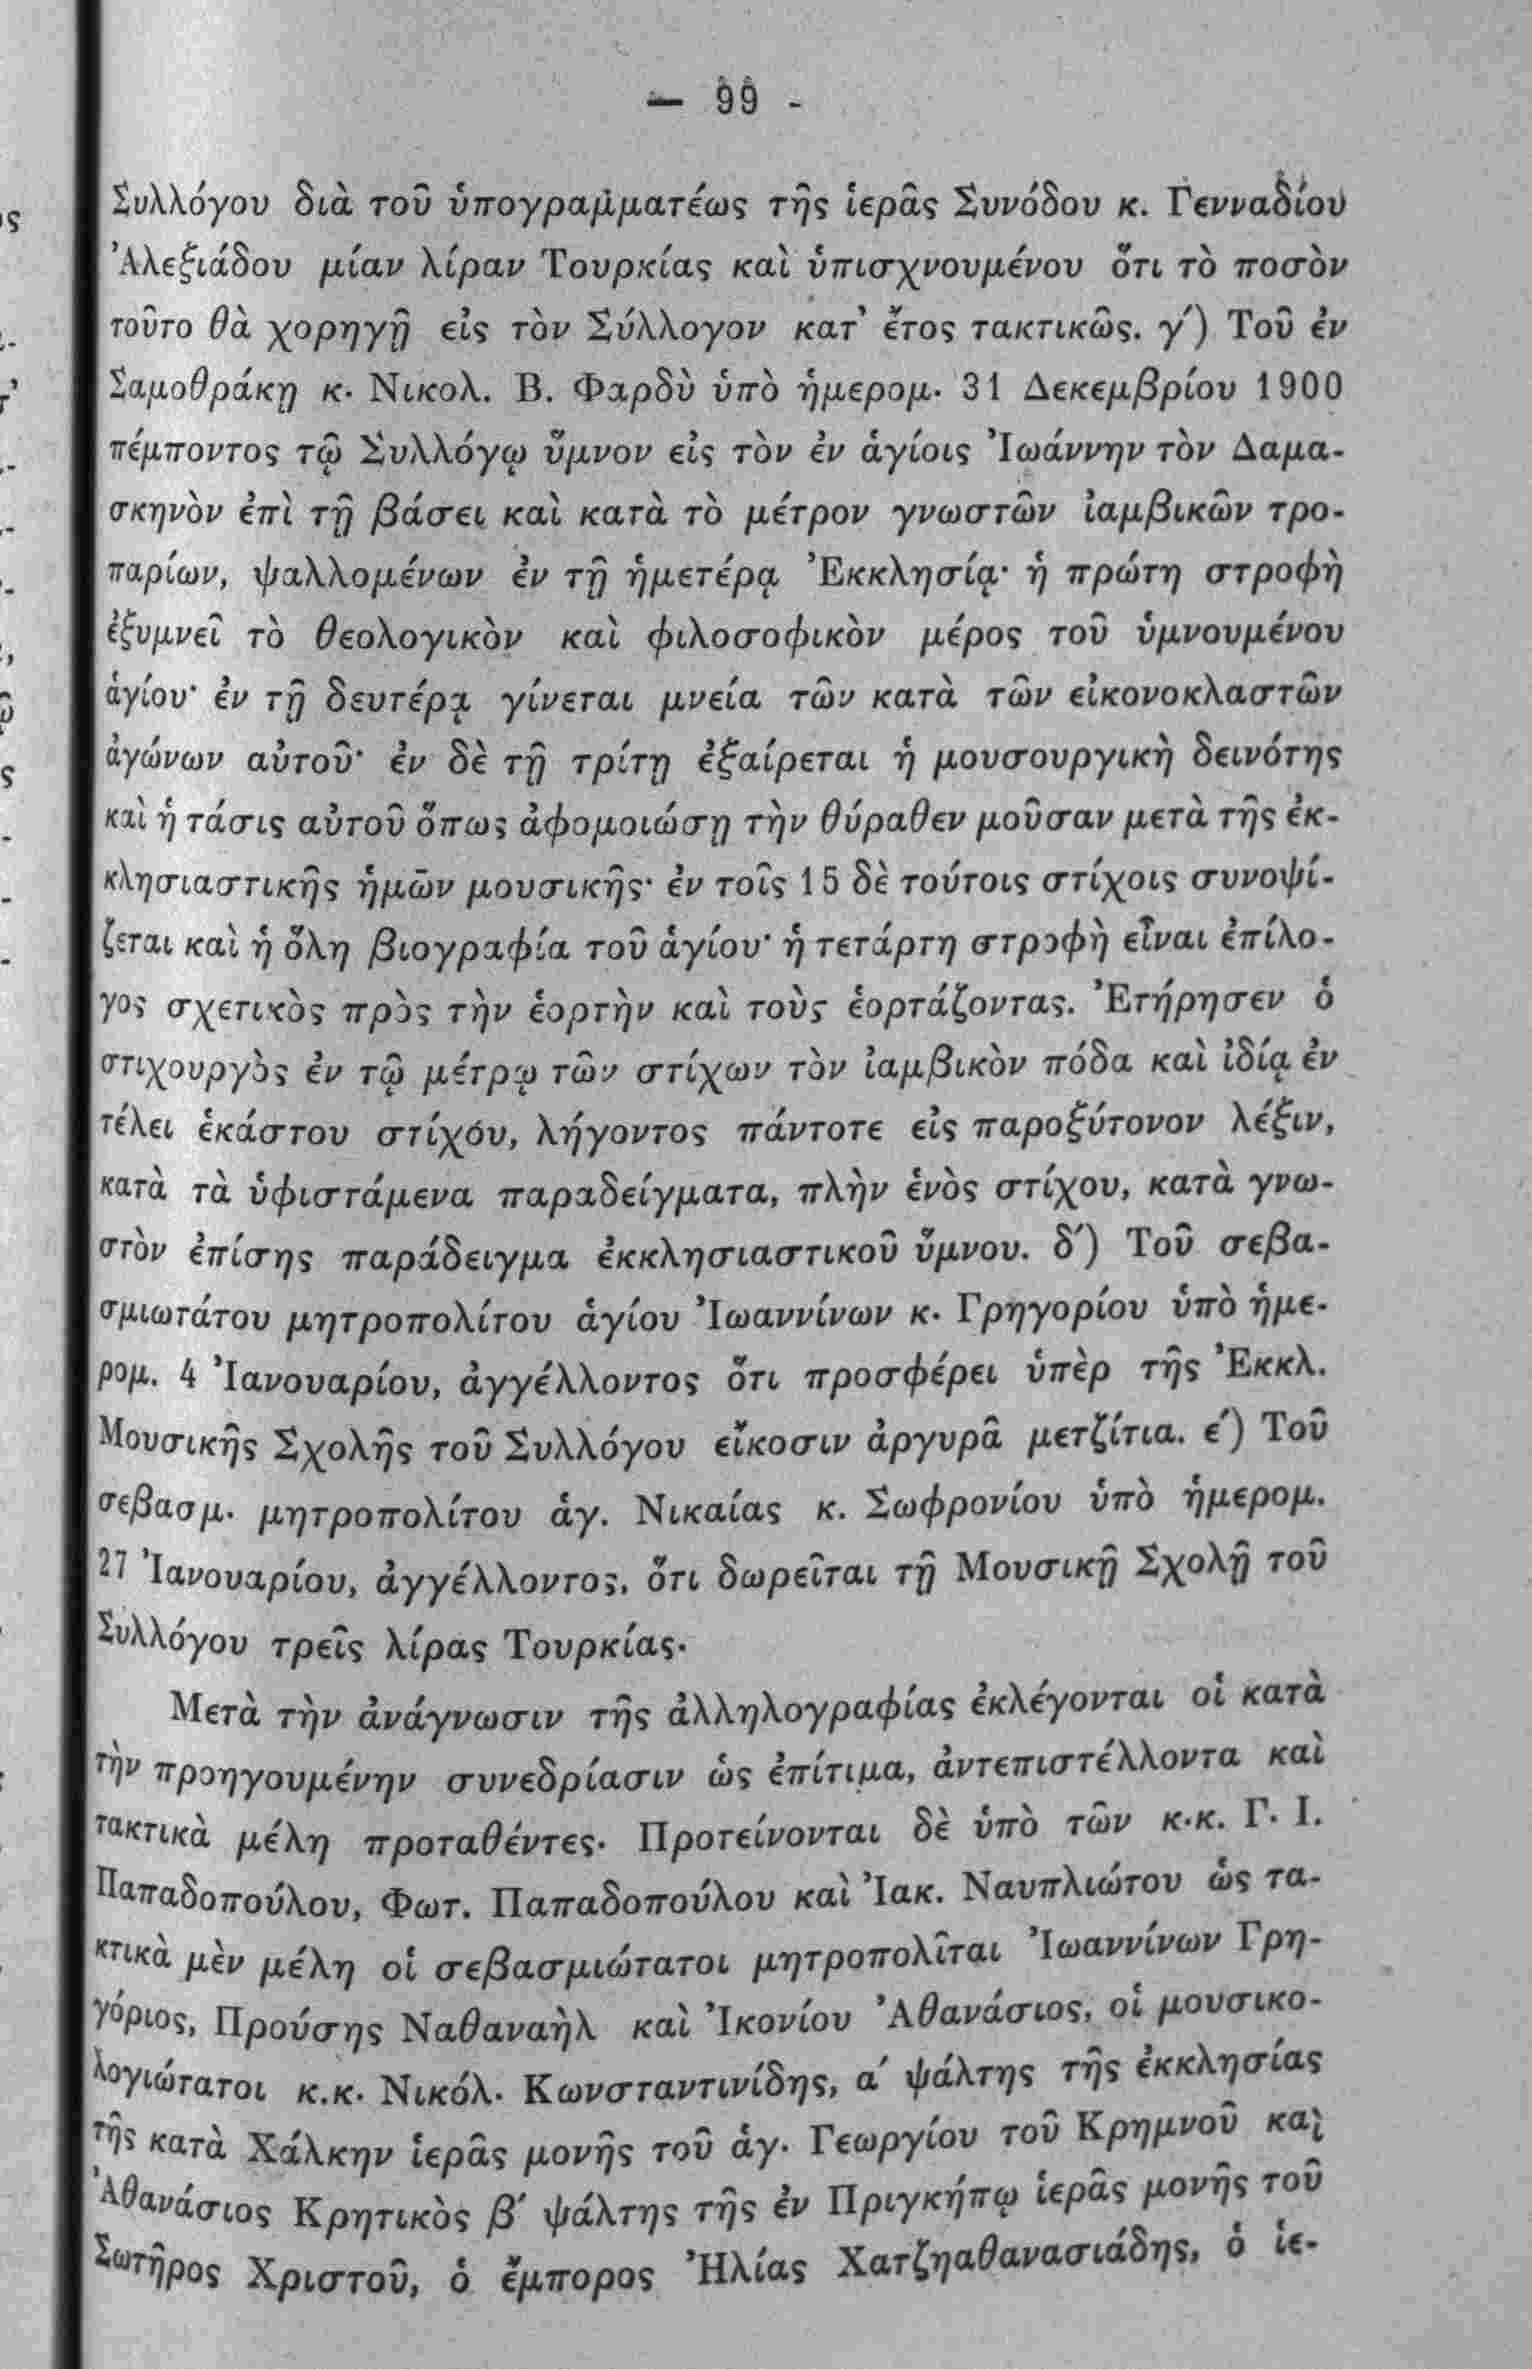 — 99 -
Συλλόγου διὰ τοῦ ὑπογραμματέως τῆς ἱερᾶς Συνόδου κ. Γενναδίου
Ἀλεξιάδου μίαν λίραν Τουρκίας καὶ ὑπισχνουμένου ὅτι τὸ ποσὸν
τοῦτο θὰ χορηγῇ εἰς τὸν Σύλλογον κατ' ἔτος τακτικῶς. γ') Τοῦ ἐν
Σαμοθράκῃ κ. Νικολ. Β. Φαρδὺ ὑπὸ ἡμερομ. 31 Δεκεμβρίου 1900
πέμποντος τῷ Συλλόγῳ ὕμνον εἰς τὸν ἐν ἁγίοις Ἰωάννην τὸν Δαμα-
σκηνὸν ἐπὶ τῇ βάσει καὶ κατὰ τὸ μέτρον γνωστῶν ἰαμβικῶν τρο-
παρίων, ψαλλομένων ἐν τῇ ἡμετέρᾳ Ἐκκλησίᾳ· ἡ πρώτη στροφὴ
ἐξυμνεῖ τὸ θεολογικὸν καὶ φιλοσοφικὸν μέρος τοῦ ὑμνουμένου
ἁγίου· ἐν τῇ δευτέρᾳ γίνεται μνεία τῶν κατὰ τῶν εἰκονοκλαστῶν
ἀγώνων αὐτοῦ· ἐν δὲ τῇ τρίτῃ ἐξαίρεται ἡ μουσουργικὴ δεινότης
καὶ ἡ τάσις αὐτοῦ ὅπως ἀφομοιώσῃ τὴν θύραθεν μοῦσαν μετὰ τῆς ἐκ-
κλησιαστικῆς ἡμῶν μουσικῆς· ἐν τοῖς 15 δὲ τούτοις στίχοις συνοψί-
ζεται καὶ ἡ ὅλη βιογραφία τοῦ ἁγίου· ἡ τετάρτη στροφὴ εἶναι ἐπίλο-
γος σχετικὸς πρὸς τὴν ἑορτὴν καὶ τοὺς ἑορτάζοντας. Ἐτήρησεν ὁ
στιχουργὸς ἐν τῷ μέτρῳ τῶν στίχων τὸν ἰαμβικὸν πόδα καὶ ἰδίᾳ ἐν
τέλει ἑκάστου στίχου, λήγοντος πάντοτε εἰς παροξύτονον λέξιν,
κατὰ τὰ ὑφιστάμενα παραδείγματα, πλὴν ἑνὸς στίχου, κατὰ γνω-
στὸν ἐπίσης παράδειγμα ἐκκλησιαστικοῦ ὕμνου. δ') Τοῦ σεβα-
σμιωτάτου μητροπολίτου ἁγίου Ἰωαννίνων κ. Γρηγορίου ὑπὸ ἡμε-
ρομ. 4 Ἰανουαρίου, ἀγγέλλοντος ὅτι προσφέρει ὑπὲρ τῆς Ἐκκλ.
Μουσικῆς Σχολῆς τοῦ Συλλόγου εἴκοσιν ἀργυρᾶ μετζίτια. ε') Τοῦ
σεβασμ. μητροπολίτου ἁγ. Νικαίας κ. Σωφρονίου ὑπὸ ἡμερομ.
27 Ἰανουαρίου, ἀγγέλλοντος, ὅτι δωρεῖται τῇ Μουσικῇ Σχολῇ τοῦ
Συλλόγου τρεῖς λίρας Τουρκίας.
Μετὰ τὴν ἀνάγνωσιν τῆς ἀλληλογραφίας ἐκλέγονται οἱ κατὰ
τὴν προηγουμένην συνεδρίασιν ὡς ἐπίτιμα, ἀντεπιστέλλοντα καὶ
τακτικὰ μέλη προταθέντες. Προτείνονται δὲ ὑπὸ τῶν κ.κ. Γ. Ι.
Παπαδοπούλου, Φωτ. Παπαδοπούλου καὶ Ἰακ. Ναυπλιώτου ὡς τα-
κτικὰ μὲν μέλη οἱ σεβασμιώτατοι μητροπολῖται Ἰωαννίνων Γρη-
γόριος, Προύσης Ναθαναὴλ καὶ Ἰκονίου Ἀθανάσιος, οἱ μουσικο-
λογιώτατοι κ.κ. Νικόλ. Κωνσταντινίδης, α' ψάλτης τῆς ἐκκλησίας
τῆς κατὰ Χάλκην ἱερᾶς μονῆς τοῦ ἁγ. Γεωργίου τοῦ Κρημνοῦ καὶ
Ἀθανάσιος Κρητικὸς β' ψάλτης τῆς ἐν Πριγκήπῳ ἱερᾶς μονῆς τοῦ
Σωτῆρος Χριστοῦ, ὁ ἔμπορος Ἠλίας Χατζηαθανασιάδης, ὁ ἱε-